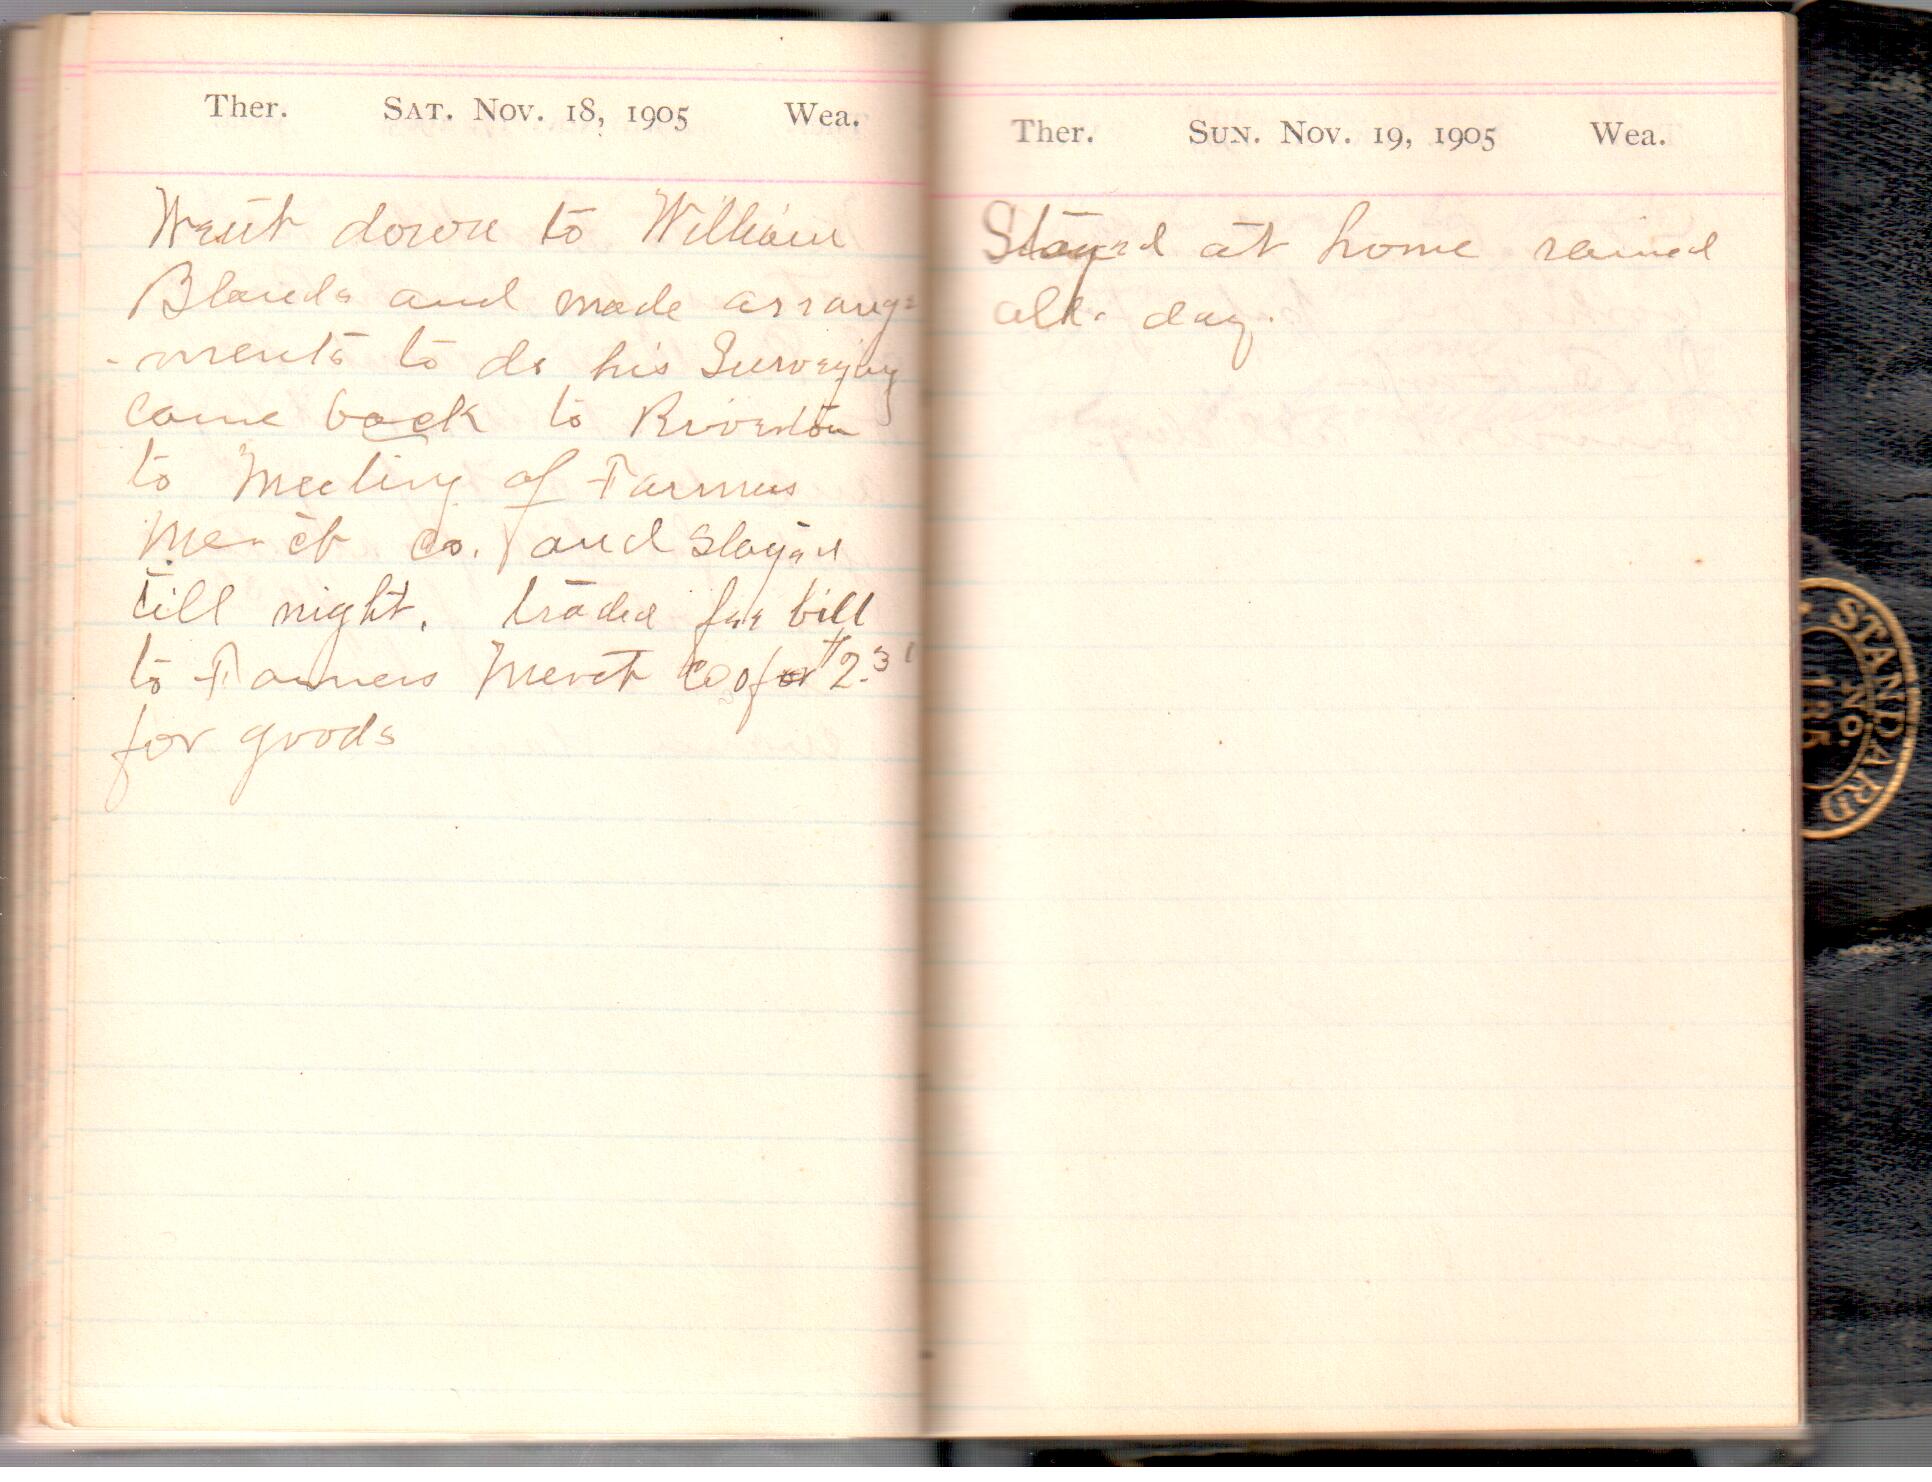 Ther. Sat. Nov. 18, 1905 Wea.
Went down to William
Blands and made arrang=
-ments to do his Surveying
came back to Riverton
to Meeting of Farmers
Merct Co. and stayed
till night. traded for bill
to Farmers Merct Co for $2.31
for goods
Ther. Sun. Nov. 19, 1905 Wea.
Stayed at home rained
all day.
STANDARD
NO.